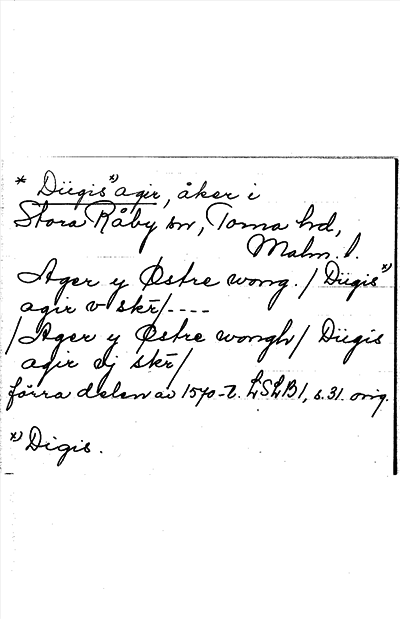 * Diigis *) agir, åker i
Stora Råby sn, Torna hd,
Malm. l.
Ager y Østre wong. / Diigis *)
agir v skr̄/ ----
/ Ager y Østre wongh / Diigis
agir vj skr̄/
förra delen av 1570-t. LSLB 1, s. 31. orig.
*) Digis.